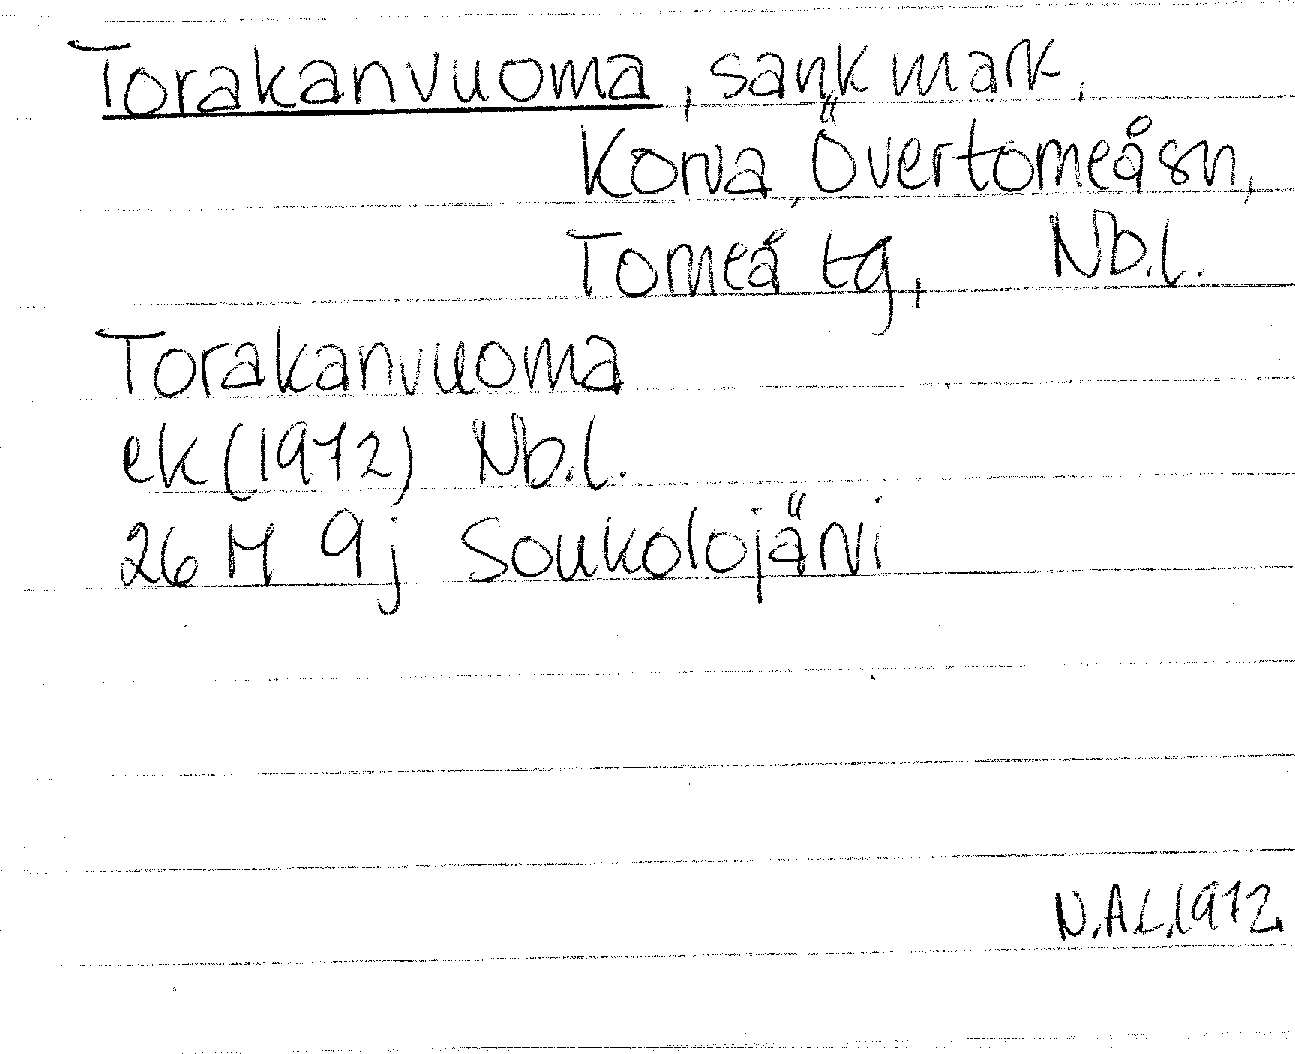 Torakanvuoma, sank mark,
Korva, Övertorneå sn,
Torneå tg, Nb.l.
Torakanvuoma
ek (1972) Nb.l.
26 M 9j Soukolojärvi
N.A.L.1972